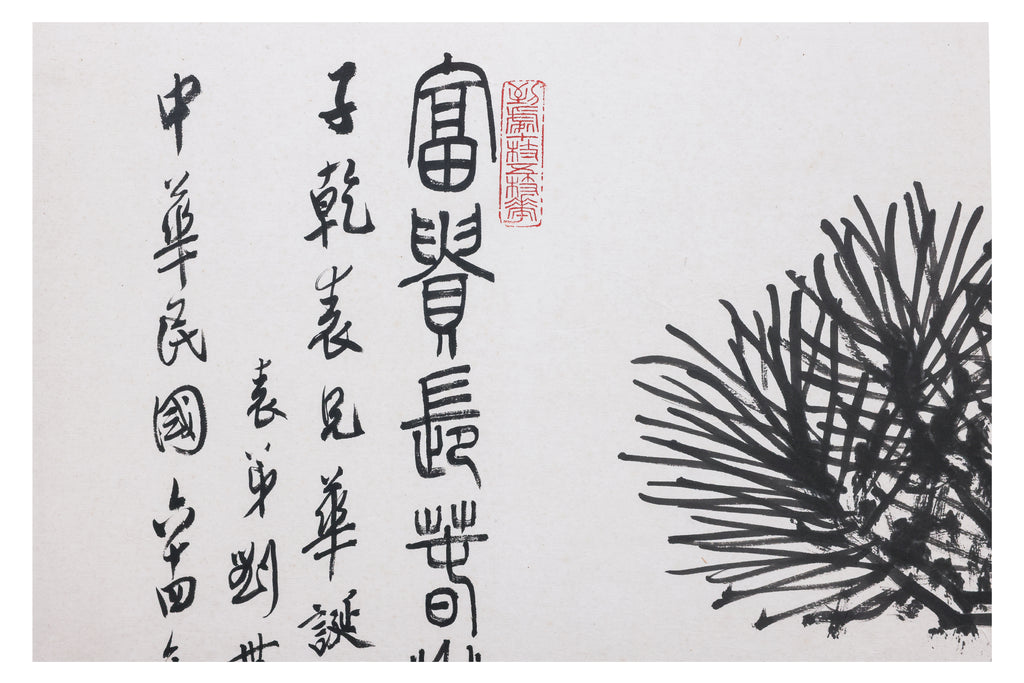 富貴長春
子乾表兄華誕
表弟劉
中華民國六十四